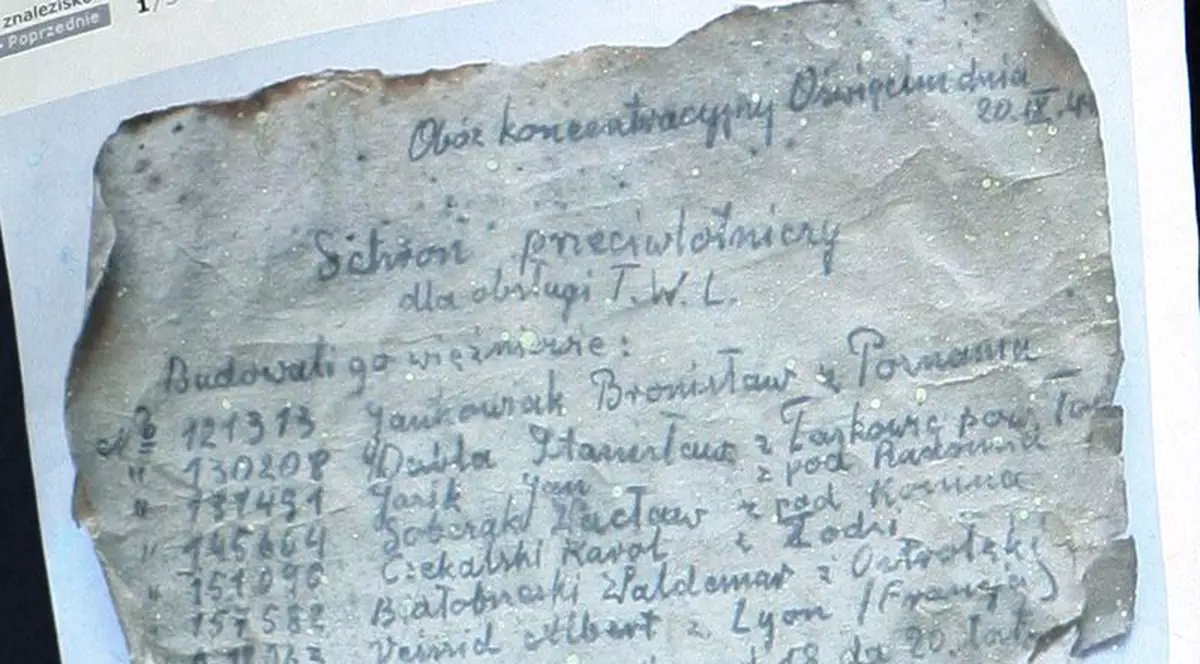 znalezisk
Poprzednie
1/3
Obóz koncentracyjny Oświęcim dnia
20.IX.44
Schron przeciwlotniczy
dla obsługi T.W.L.
Budowali go więźniowie:
№ 121313 Jankowiak Bronisław z Poznania
" 130208 Dubla Stanisław z Łaskowic pow. Tar
" 131491 Jasik Jan z pod Radomia
" 145664 Sobczak Wacław z pod Konina
" 151090 Czekalski Karol z Łodzi
" 157582 Białobrzeski Waldemar z Ostrołęki
Veissid Albert z Lyon (Francja)
18 do 20 lat